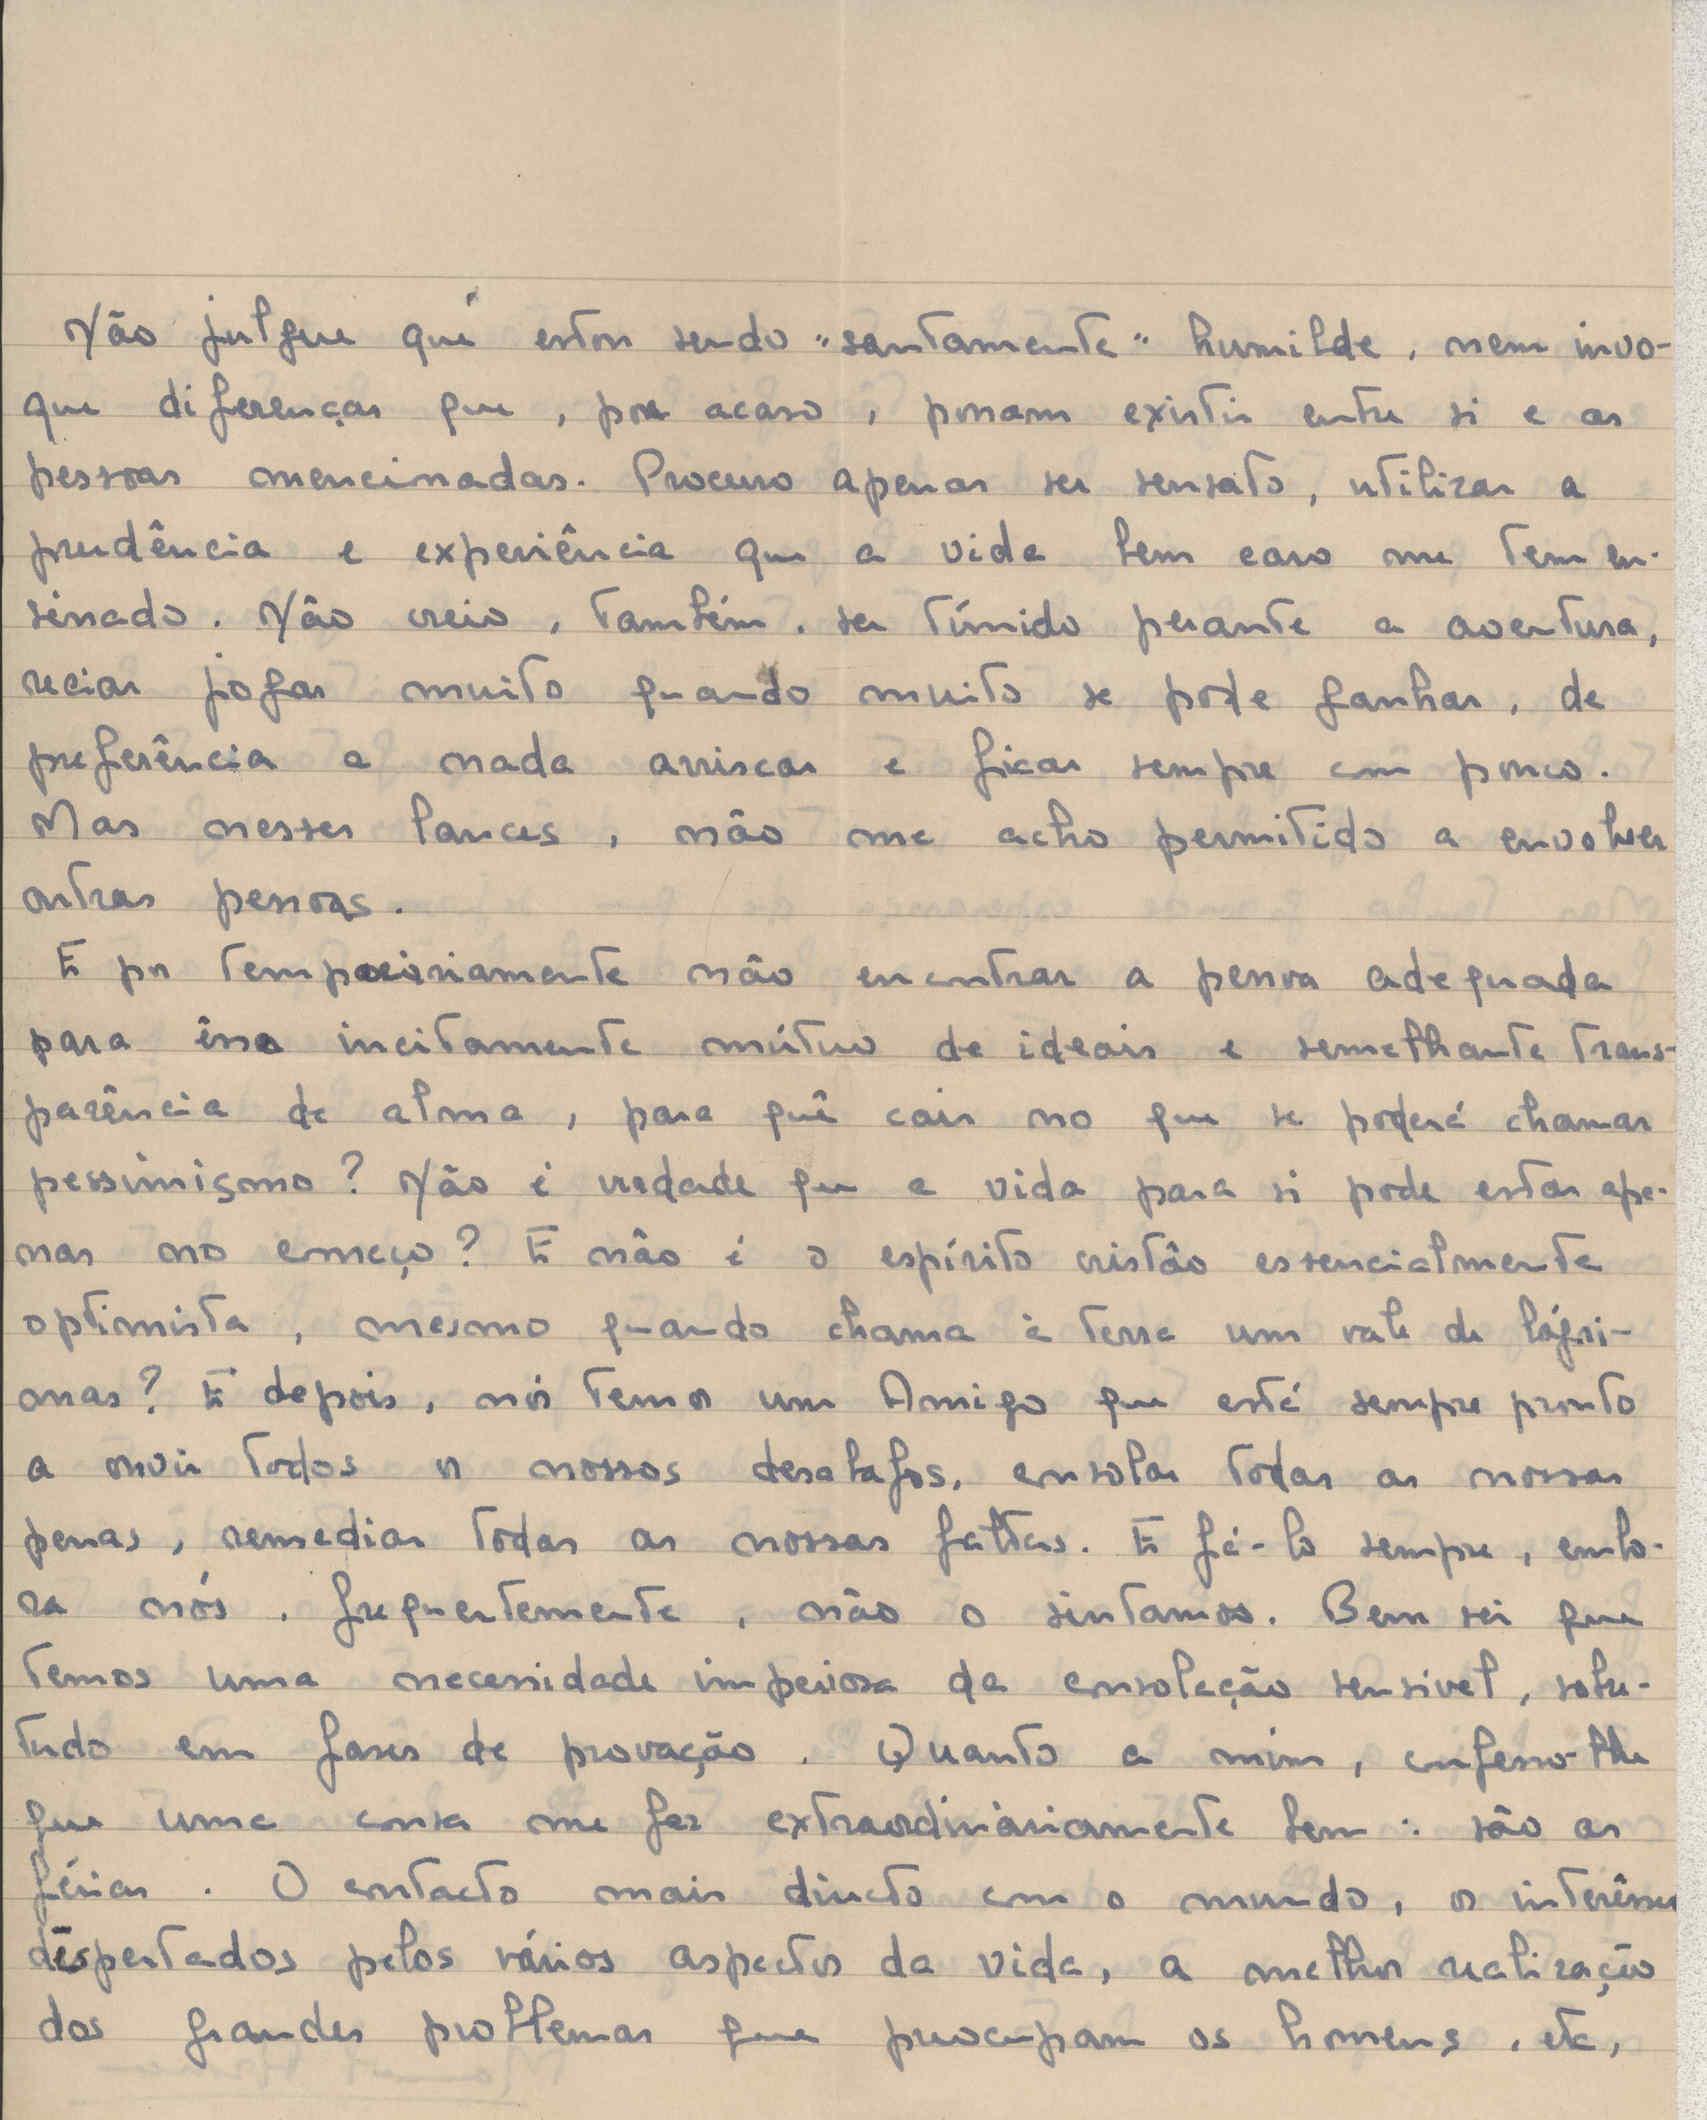 Não julgue que estou sendo "santamente" humilde, nem invo-
que diferenças que, por acaso, possam existir entre si e as
pessoas mencionadas. Procuro apenas ser sensato, utilizar a
prudência e experiência que a vida bem caro me tem en-
sinado. Não creio, também, ser tímido perante a aventura,
recear jogar muito quando muito se pode ganhar, de
preferência a nada arriscar e ficar sempre com pouco.
Mas nesses lances, não me acho permitido a envolver
outras pessoas.
E por temporàriamente não encontrar a pessoa adequada
para êsse incitamento mútuo de ideais e semelhante trans-
parência de alma, para quê cair no que se poderá chamar
pessimismo? Não é verdade que a vida para si pode estar ape-
nas no comêço? E não é o espírito cristão essencialmente
optimista, mesmo quando chama à terra um vale de lágri-
mas? E depois, nós temos um Amigo que está sempre pronto
a ouvir todos os nossos desabafos, consolar todas as nossas
penas, remediar todas as nossas faltas. E fá-lo sempre, embo-
ra nós, frequentemente, não o sintamos. Bem sei que
temos uma necessidade imperiosa da consolação sensível, sobre-
tudo em fases de provação. Quanto a mim, confesso-lhe
que uma cousa me faz extraordinàriamente bem: são as
férias. O contacto mais directo com o mundo, os interêsses
despertados pelos vários aspectos da vida, a melhor realização
dos grandes problemas que preocupam os homens, etc,